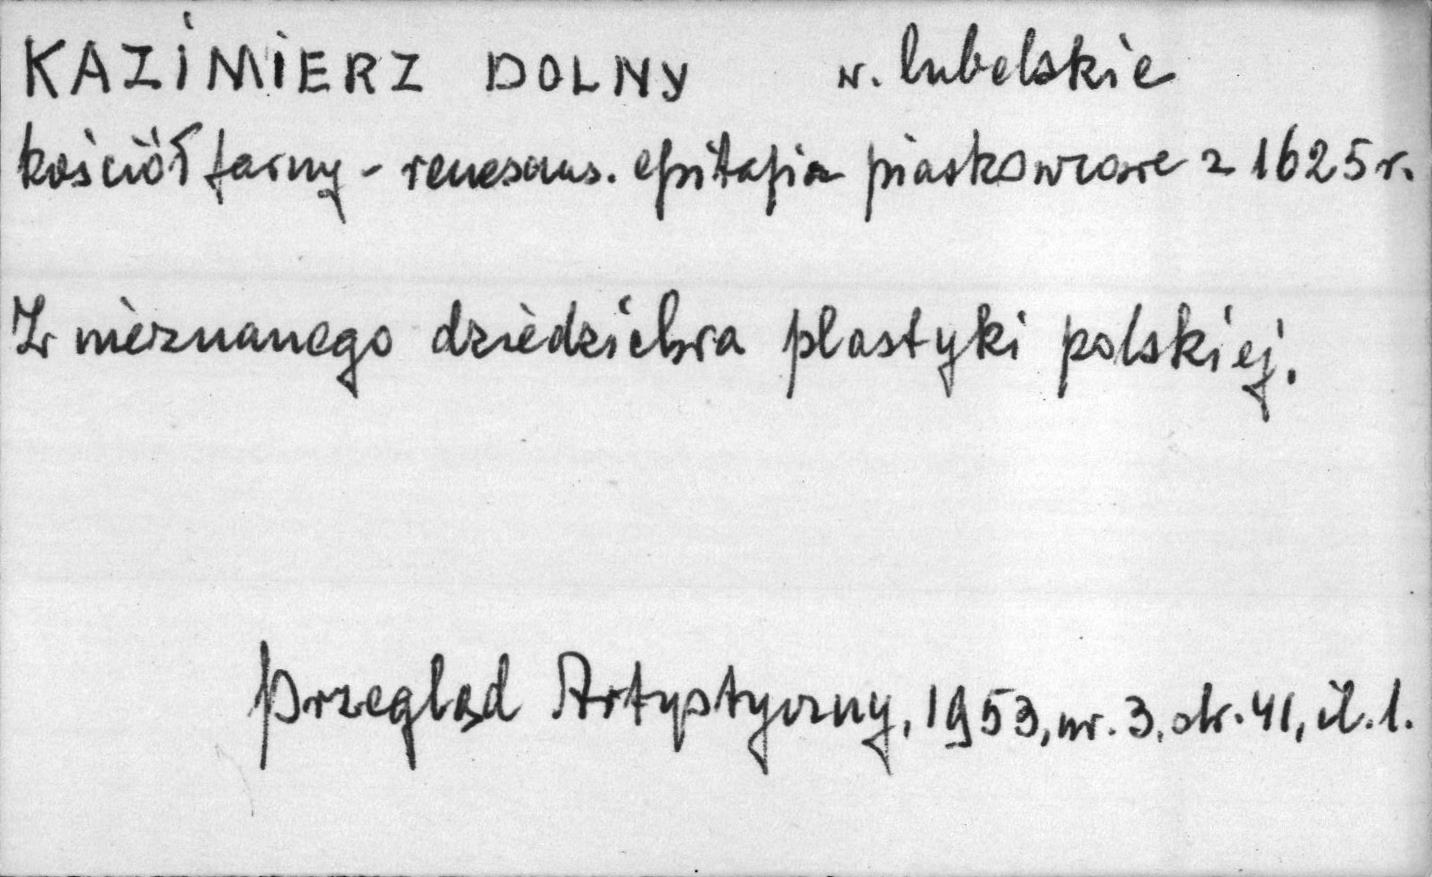 KAZIMIERZ DOLNY w. lubelskie
kościół farny - renesans. epitafia piaskowcowe z 1625 r.
Z nieznanego dziedzictwa plastyki polskiej.
Przegląd Artystyczny, 1953, nr. 3, str. 41, il. 1.